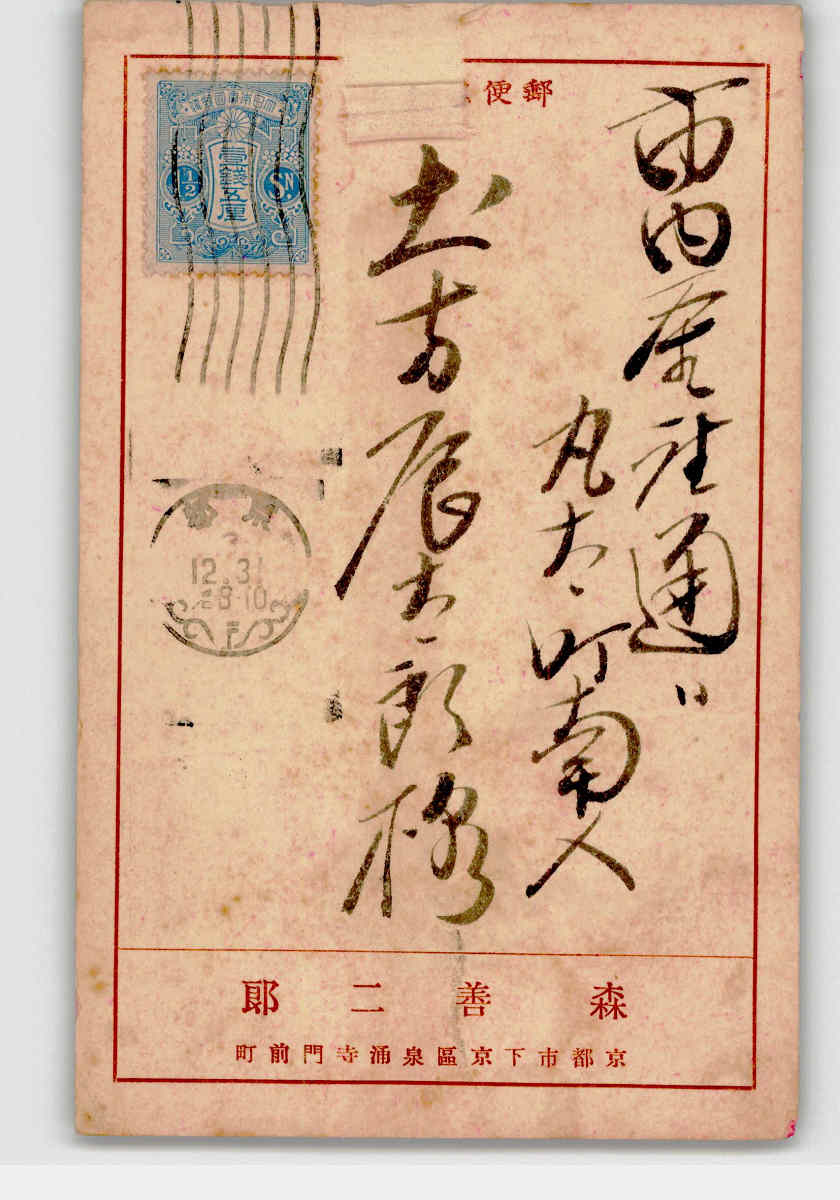 郵便
市内釜座通り
丸太町南入
土方辰太郎様
壹錢五厘
1/2
SN
12.31
8-10
森善二郎
京都市下京區泉涌寺門前町